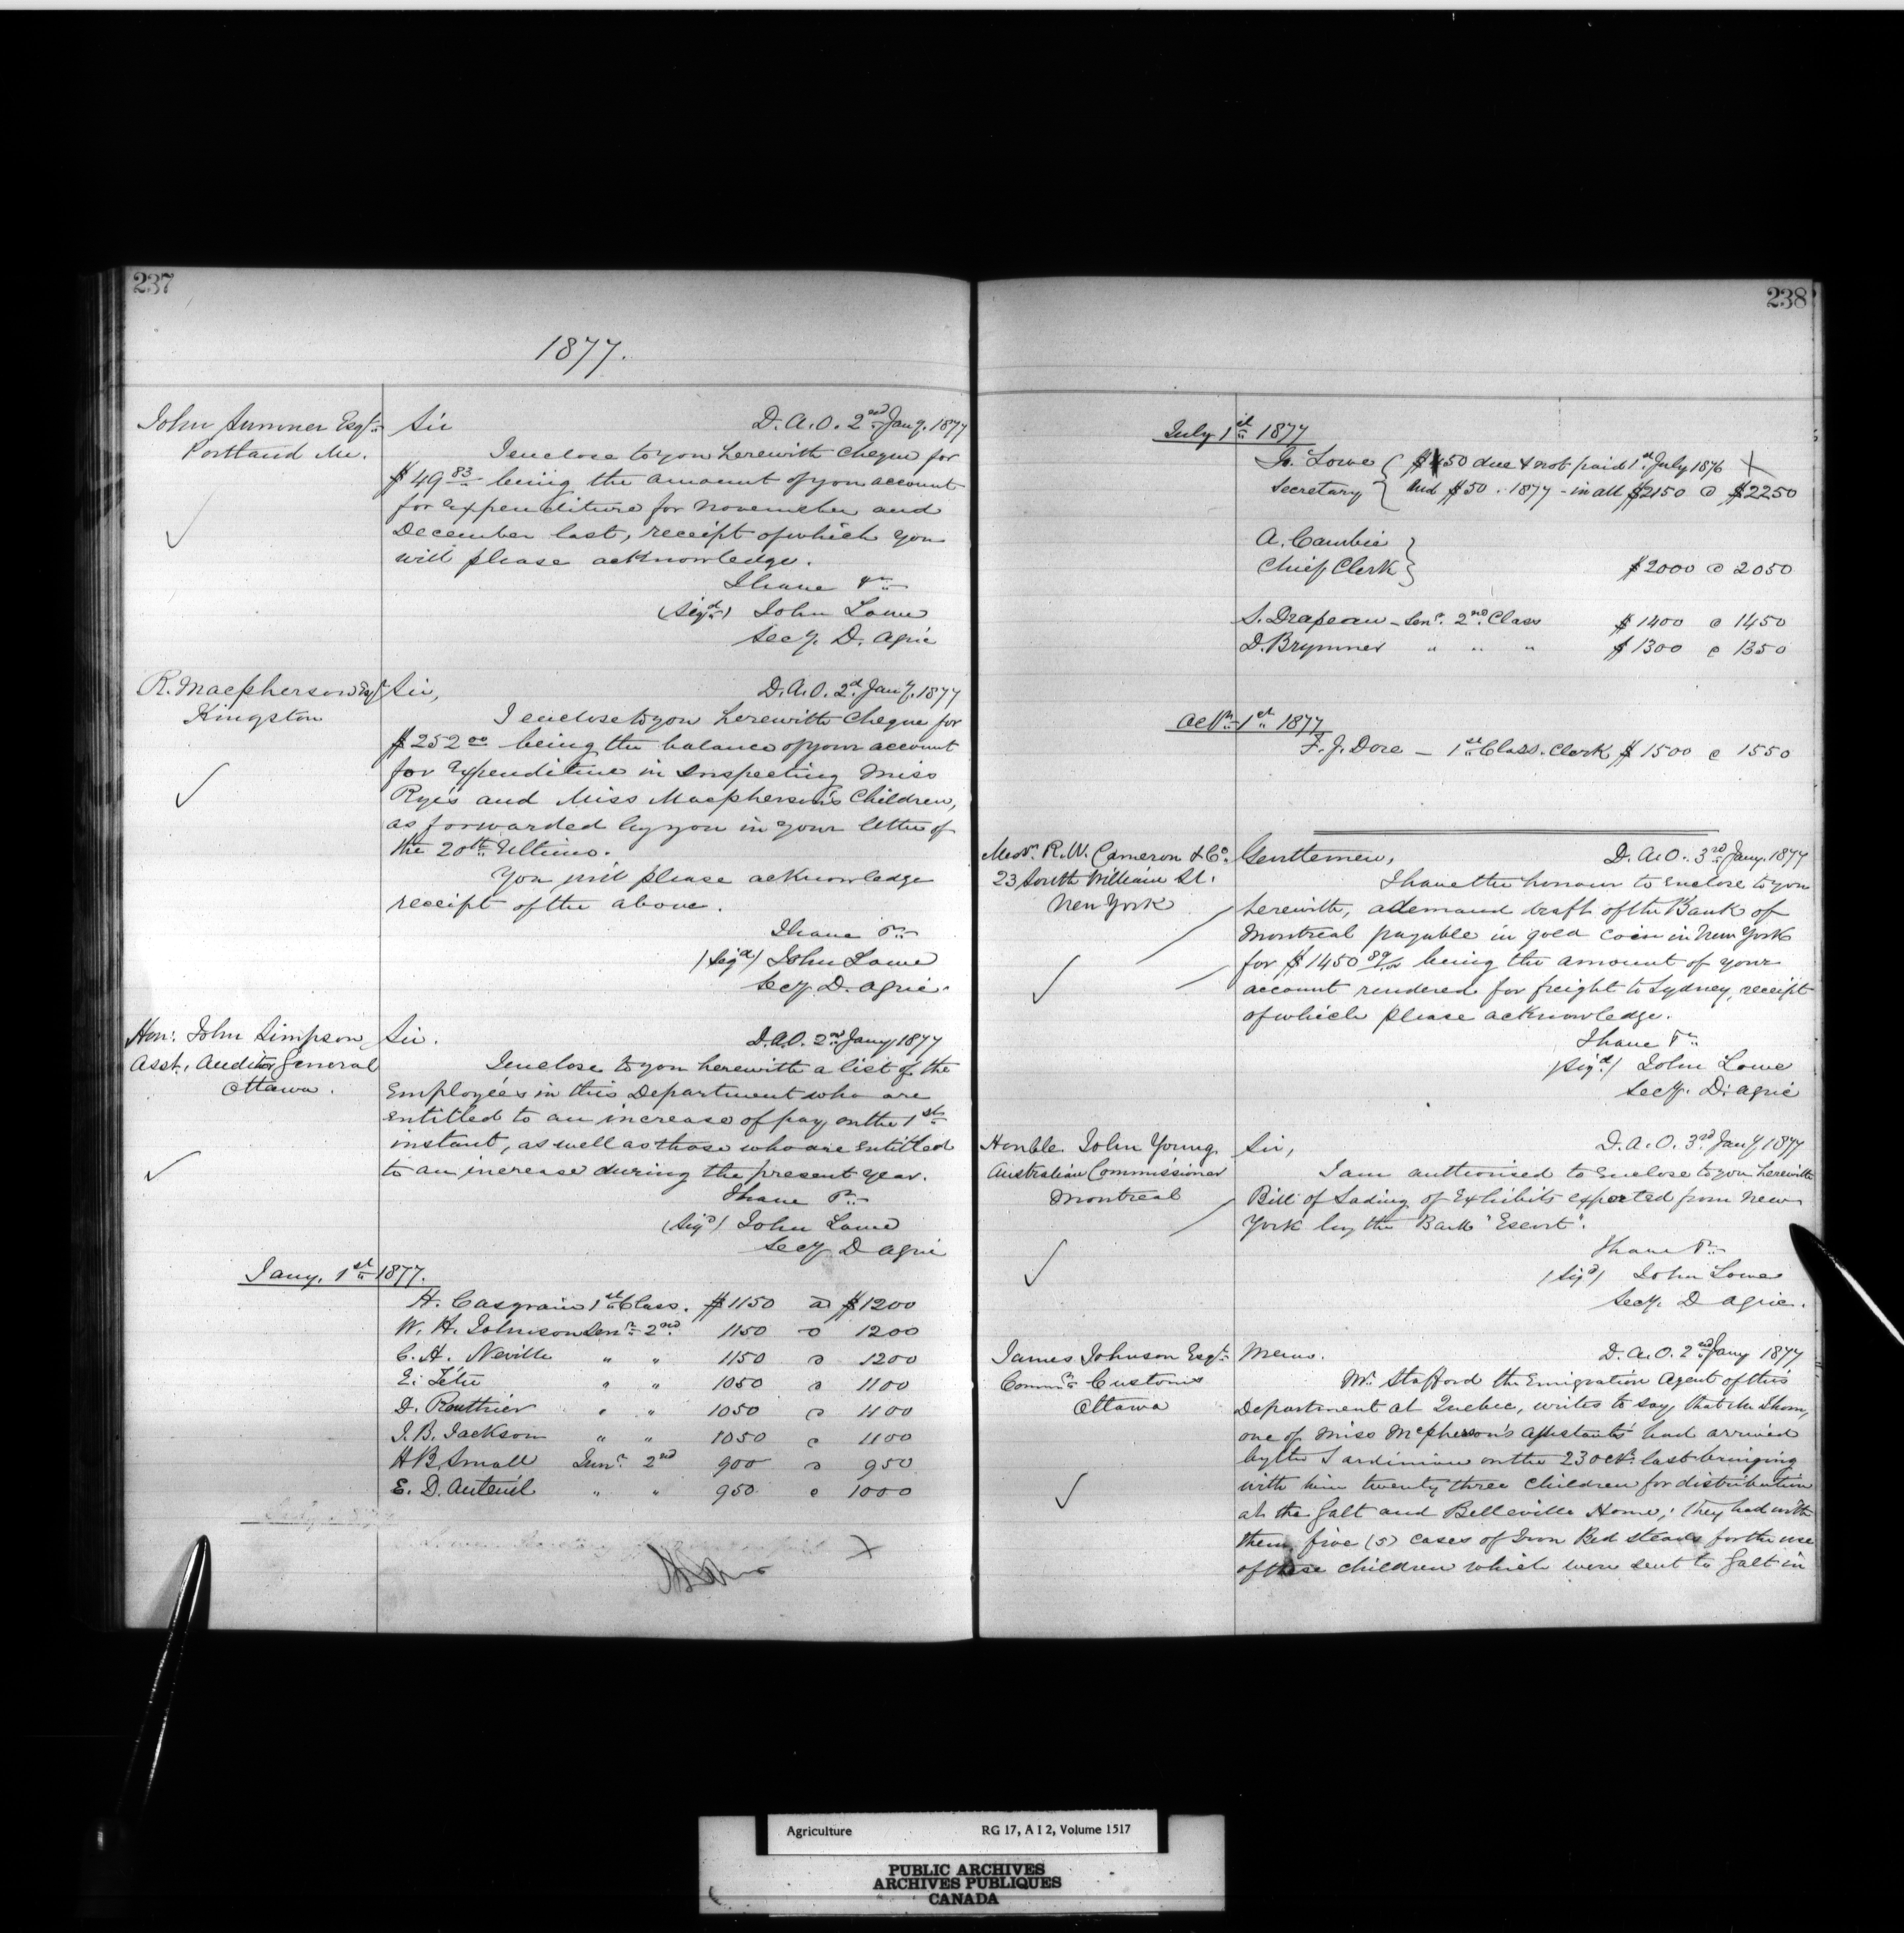 237
1877.
John Sumner Esqr.
Portland Me.
Sir D. A. O. 2nd Jany. 1877
I enclose to you herewith cheque for
$49 83 being the amount of your account
for Expenditure for November and
December last, receipt of which you
will please acknowledge.
I have &c
(Sigd) John Lowe
Secy. D. Agric
R. Macpherson Esqr
Kingston
Sir, D. A. O. 2d Jany. 1877
I enclose to you herewith cheque for
$252 00 being the balance of your account
for Expenditure in Inspecting Miss
Rye's and Miss Macpherson's Children,
as forwarded by you in your letter of
the 20th Ultimo.
You will please acknowledge
receipt of the above.
I have &c
(Sigd) John Lowe
Secy. D. Agric.
Hon: John Simpson,
Asst. Auditor General
Ottawa.
Sir. D. A. O. 2nd Jany 1877
I enclose to you herewith a list of the
Employées in this Department who are
Entitled to an increase of pay on the 1st
instant, as well as those who are Entitled
to an increase during the present year.
I have &c
(Sigd) John Lowe
Secy D Agric
Jany. 1st 1877.
H. Casgrain 1st Class. $1150 @ $1200
W. H. Johnson Senr. 2nd 1150 @ 1200
C. H. Neville " " 1150 @ 1200
E. Tétu " " 1050 @ 1100
D. Routhier " " 1050 @ 1100
J. B. Jackson " " 1050 @ 1100
H B Small Junr. 2nd 900 @ 950
E. D. Auteuil " " 950 @ 1000
238
July 1st 1877
Jn. Lowe ( $50 due & not paid 1st July 1876 X
Secretary } and $50 . 1877 - in all $2150 @ $2250
A. Cambie }
Chief Clerk } $2000 @ 2050
S. Drapeau - Senr. 2nd Class $1400 @ 1450
D. Brymner " " " $1300 @ 1350
1st 1877
F. J. Dore - 1st Class. Clerk $1500 @ 1550
Messrs. R. W. Cameron & Co.
23 South William St.
New York
Gentlemen, D. A. O. 3rd Jany. 1877
I have the honour to Enclose to you
herewith, a demand draft of the Bank of
Montreal payable in gold coin in New York
for $1450 being the amount of your
account rendered for freight to Sydney, receipt
of which please acknowledge.
I have &c
(Sigd) John Lowe
Secy. D. Agric
Honble. John Young.
Australian Commissioner
Montreal
Sir, D. A. O. 3rd Jany 1877
I am authorised to Enclose to you herewith
Bill of Lading of Exhibits exported from New
York by the Bark "Escort".
I have &c
(Sigd) John Lowe
Secy. D Agric.
James Johnson Esqr.
Commr. Customs
Ottawa
Memo. D. A. O. 2nd Jany 1877
Mr. Stafford the Emigration Agent of this
Department at Quebec, writes to say, that Mr Thom,
one of Miss McPherson's assistants had arrived
by the Sardinian on the 23 Oct. last bringing
with him twenty three children for distribution
at the Galt and Belleville Home; they had with
them, five (5) cases of Iron Bed steads for the use
of these children which were sent to Galt in
Agriculture RG 17, A I 2, Volume 1517
PUBLIC ARCHIVES
ARCHIVES PUBLIQUES
CANADA